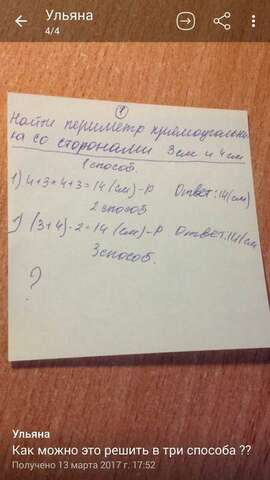 Ульяна
4/4
1
Найти периметр прямоугольни-
ка со сторонами 3см и 4см
1 способ.
1) 4+3+4+3=14 (см)-Р Ответ:14(см)
2 способ
(3+4)·2=14 (см)-Р Ответ:14(см
3 способ.
?
Ульяна
Как можно это решить в три способа ??
Получено 13 марта 2017 г. 17:52